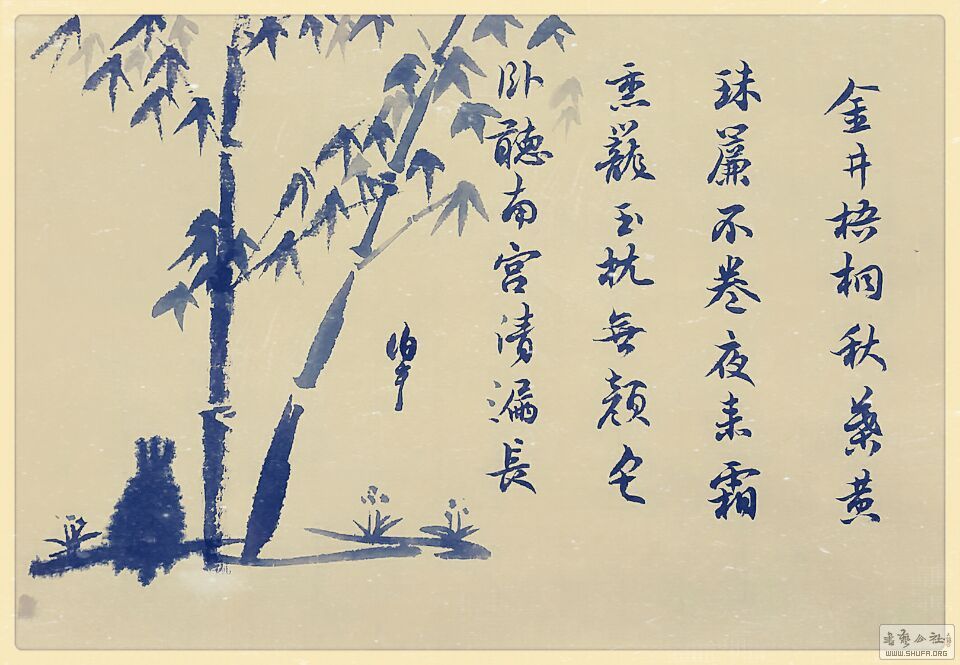 金井梧桐秋葉黄
珠簾不卷夜来霜
熏籠玉枕無顔色
卧聽南宫清漏長
书艺公社
WWW.SHUFA.ORG